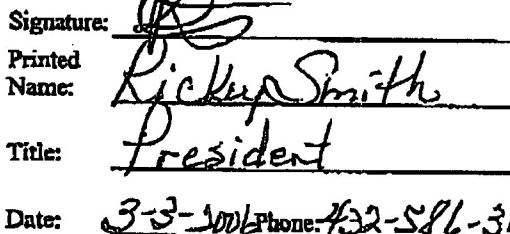 Signature:
Printed
Name: Rickey Smith
Title: President
Date: 3-3-2006 Phone: 432-586-3